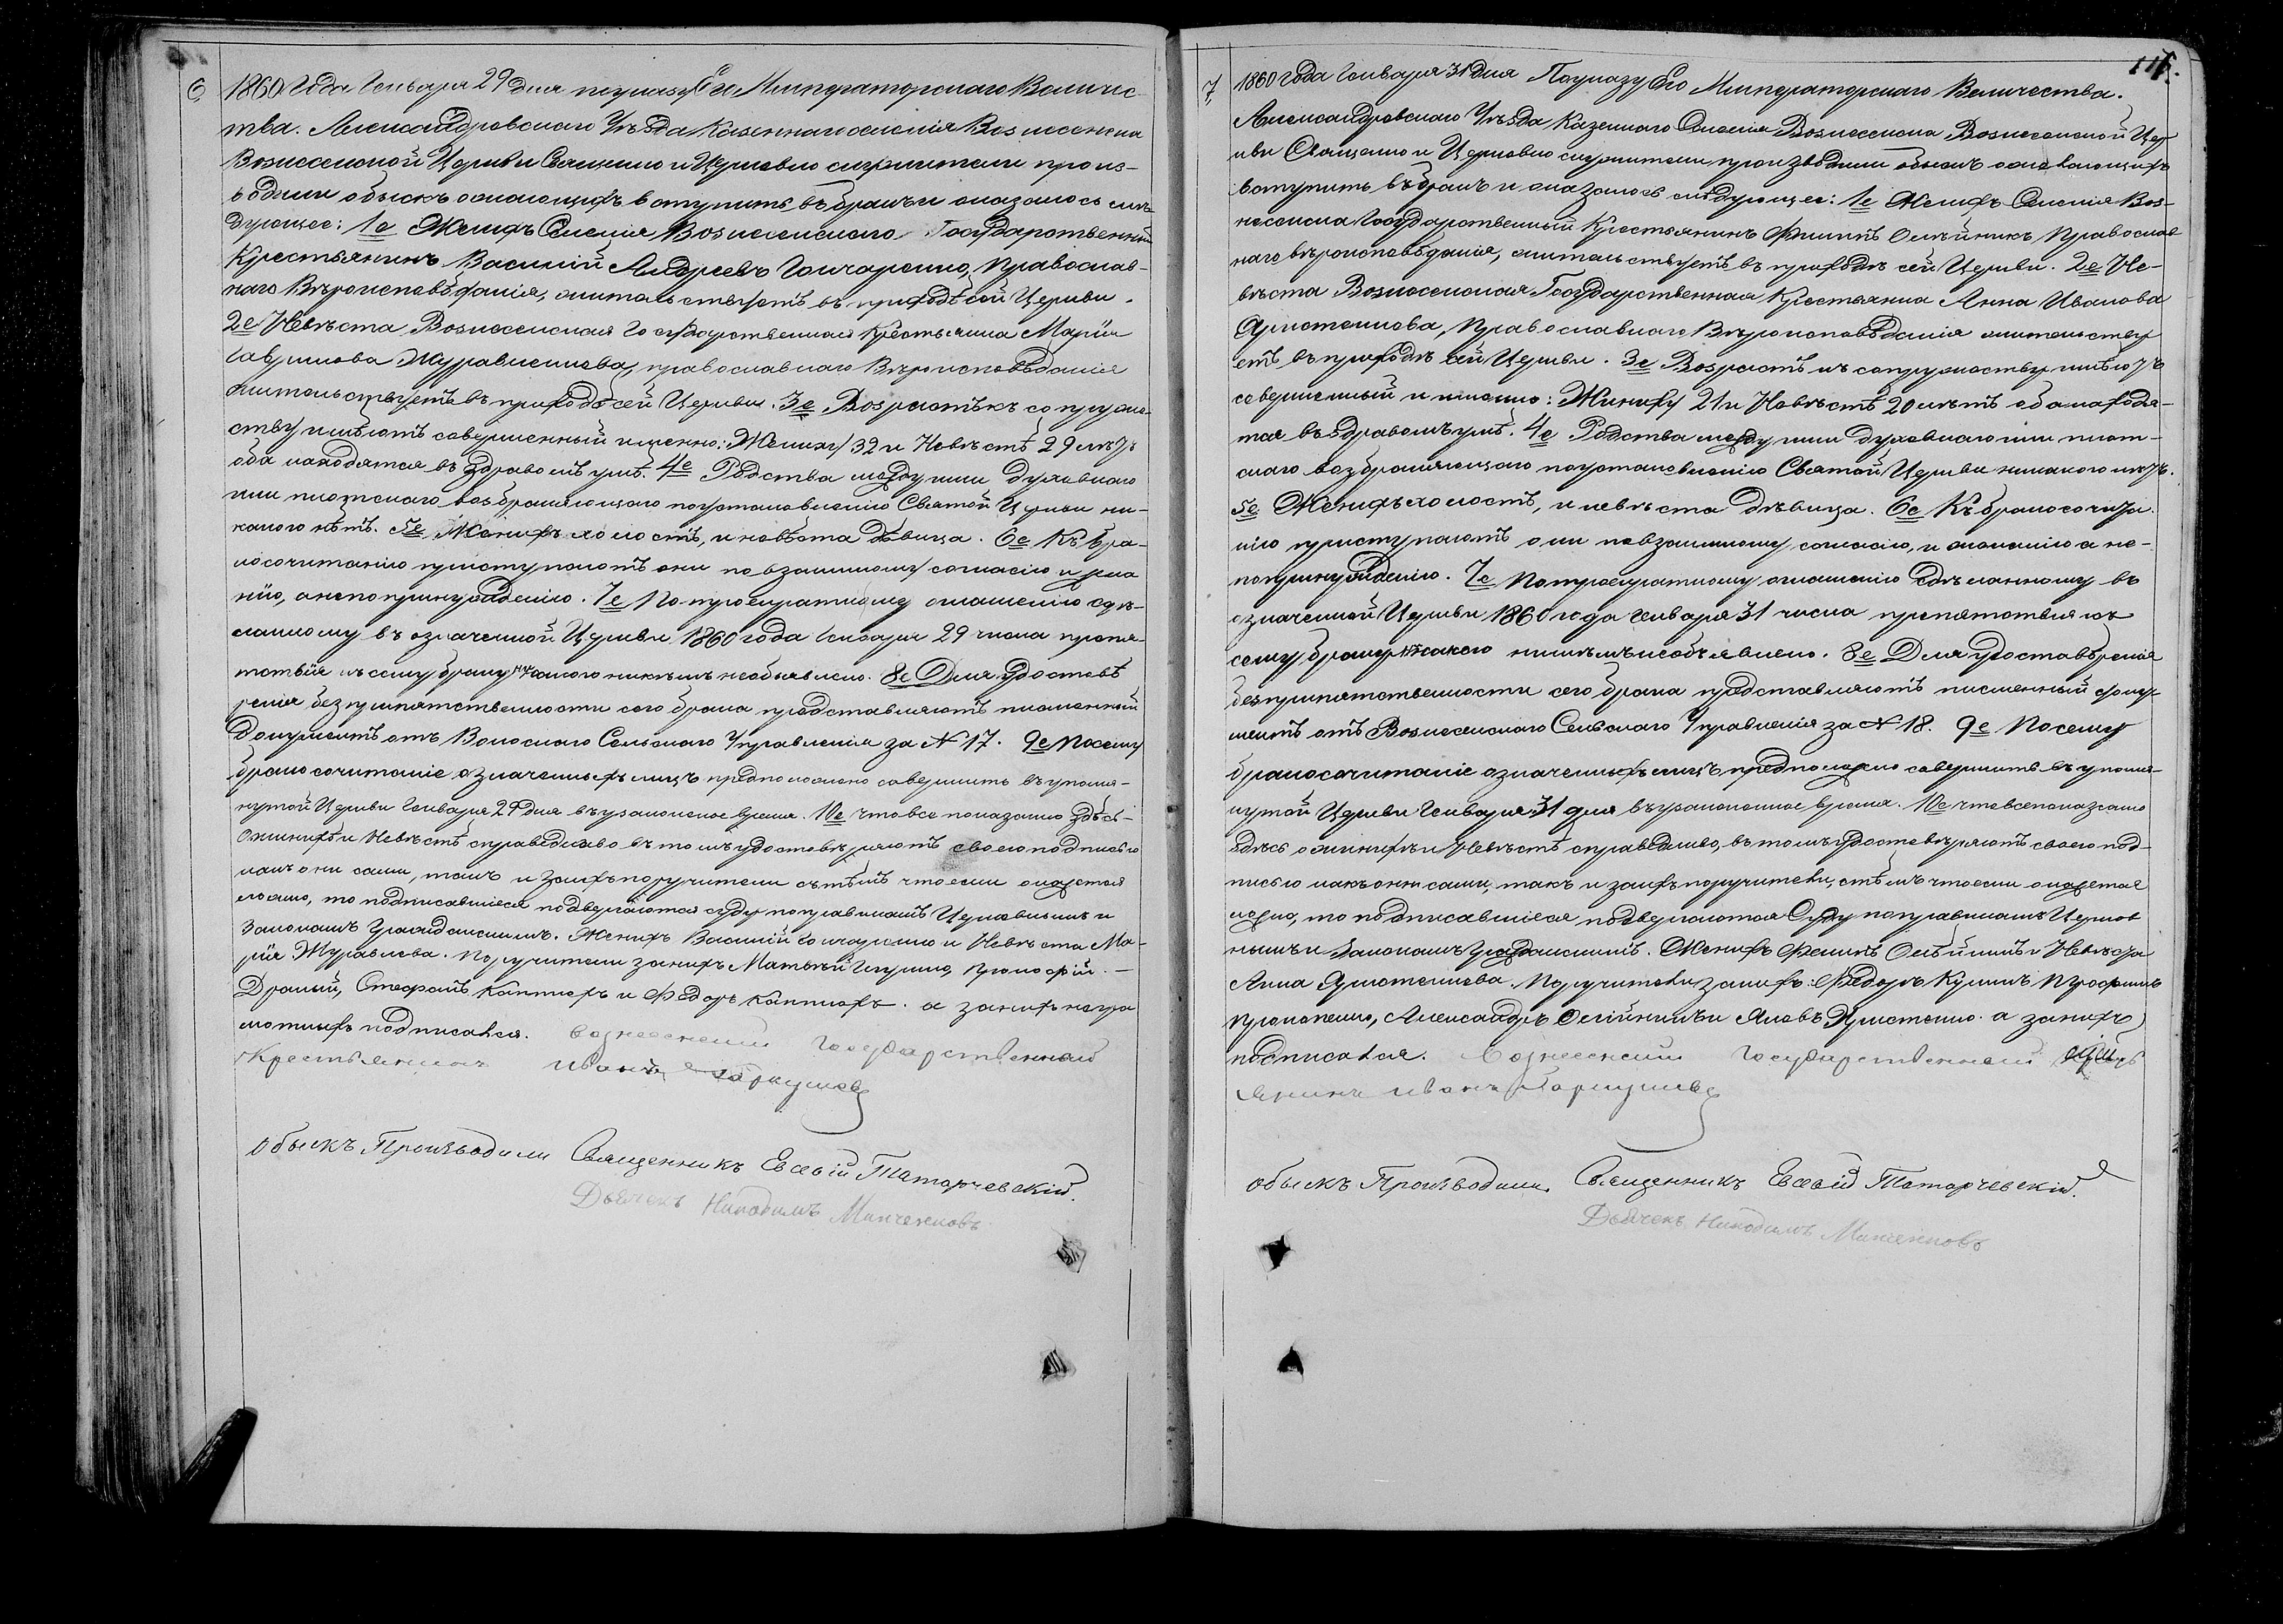 6
1860 Года Генваря 29 дня по указу Его Императорскаго Величес-
тва. Александровскаго Уѣзда Казеннаго селенія Вознесенска
Вознесенской Церкви Священно и Церковно служители произ-
водили обыскъ желающихъ вступить въ бракъ и оказалось слѣ-
дующее: 1е Женихъ Селенія Вознесенскаго Государственный
Крестьянинъ Василій Андреевъ Гончаренко, Православ-
наго Вѣроисповѣданія, жительствуетъ въ приходѣ сей Церкви.
2е Невѣста Вознесенская Государственная Крестьянка Марія
Гаврилова Журавленкова, православнаго Вѣроисповѣданія
жительствуетъ въ приходѣ сей Церкви. 3е Возрастъ къ супруже-
ству имѣютъ совершенный именно: Жениху 32 и Невѣстѣ 29 лѣтъ
оба находятся въ здравомъ умѣ. 4е Родства между ими духовнаго
или плотскаго возбраняющаго по установленію Святой Церкви ни-
какого нѣтъ. 5е Женихъ холостъ, и невѣста дѣвица. 6е Къ бра-
косочитанію приступаютъ они по взаимному согласію и жела
нію, а не по принужденію. 7е По троекратному оглашенію сдѣ-
ланному въ означенной Церкви 1860 года Генваря 29 числа препя-
тствія къ сему браку никакого никѣмъ необъявлено. 8е Для удостовѣ
ренія безпрепятственности сего брака представляютъ писменный
Документъ отъ Волоснаго Сельскаго Управленія за № 17. 9е Посему
бракосочитаніе означенныхъ лицъ предположено совершить въ упомя-
нутой Церкви Генваря 29 дня въ узаконенное время. 10е что все показанно здѣсь
о женихѣ и Невѣстѣ справедливо въ томъ удостовѣряютъ своею подписью
какъ они сами, такъ и за нихъ поручители съ тѣмъ что если окажется
ложно, то подписавшіеся подвергаются суду по правиламъ Церковнымъ и
Законамъ Гражданскимъ. Женихъ Василій Гончаренко и Невѣста Ма-
рія Журавлева. Поручители за нихъ Матвѣй Прокофій
Драный, Стефанъ и Федоръ а за нихъ негра
мотныхъ подписался. вознесенский государственный
Крестьянинъ Иванъ Гаркушев
Обыскъ Производили Священникъ Евсевій Татарчевскій.
Дьячекъ Никодимъ Минченковъ
117.
7
1860 года Генваря 31 дня По указу Его Императорскаго Величества.
Александровскаго Уѣзда Казеннаго Селенія Вознесенска Вознесенской Цер
кви Священно и Церковно служители производили обыскъ желающихъ
вступить въ бракъ и оказалось слѣдующее: 1е Женихъ Селенія Воз-
несенска Государственный Крестьянинъ Филипъ Олѣйникъ Православ
наго вѣроисповѣданія, жительствуетъ въ приходѣ сей Церкви. 2е Не-
вѣста Вознесенская Государственная Крестьянка Анна Иванова
Христенкова, Православнаго Вѣроисповѣданія жительству
етъ въ приходѣ сей Церкви. 3е Возрастъ къ супружеству имѣютъ
совершенный и именно: Жениху 21 и Невѣстѣ 20 лѣтъ оба находя-
тся въ здравомъ умѣ. 4е Родства между ими духовнаго или плот-
скаго возбраняющаго по установленію Святой Церкви никакого нѣтъ.
5е Женихъ холостъ, и невѣста дѣвица. 6е Къ бракосочита
нію приступаютъ они по взаимному согласію, и желанію а не-
по принужденію. 7е По троекратному оглашенію сдѣланному въ
означенной Церкви 1860 года Генваря 31 числа препятствія къ
сему браку никакого никѣмъ необъявлено. 8е Для удостовѣренія
безпрепятственности сего брака представляютъ писменный доку-
ментъ отъ Вознесенскаго Сельскаго Управленія за № 18. 9е Посему
бракосочитаніе означенныхъ лицъ предположено совершить въ упомя-
нутой Церкви Генваря 31 дня въ узаконенное время. 10е что все показанно
здѣсь о женихѣ и Невѣстѣ справедливо, въ томъ удостовѣряютъ своею под-
писью какъ они сами, такъ и за нихъ поручители, стѣмъ что если окажется
ложно, то подписавшіеся подвергаются Суду по правиламъ Церков
нымъ и Законамъ Гражданскимъ. Женихъ Филипъ Олѣйникъ и Невѣста
Анна Христенкова. Поручители за нихъ: Федоръ Трофимъ
Прокопенко, Александръ Олѣйникъ и Яковъ Христенко. а за нихъ
подписался. Вознесенский государственный
янинъ Иванъ Гаркушев
Обыскъ Производили Священникъ Евсевій Татарчевскій.
Дьячекъ Никодимъ Минченковъ